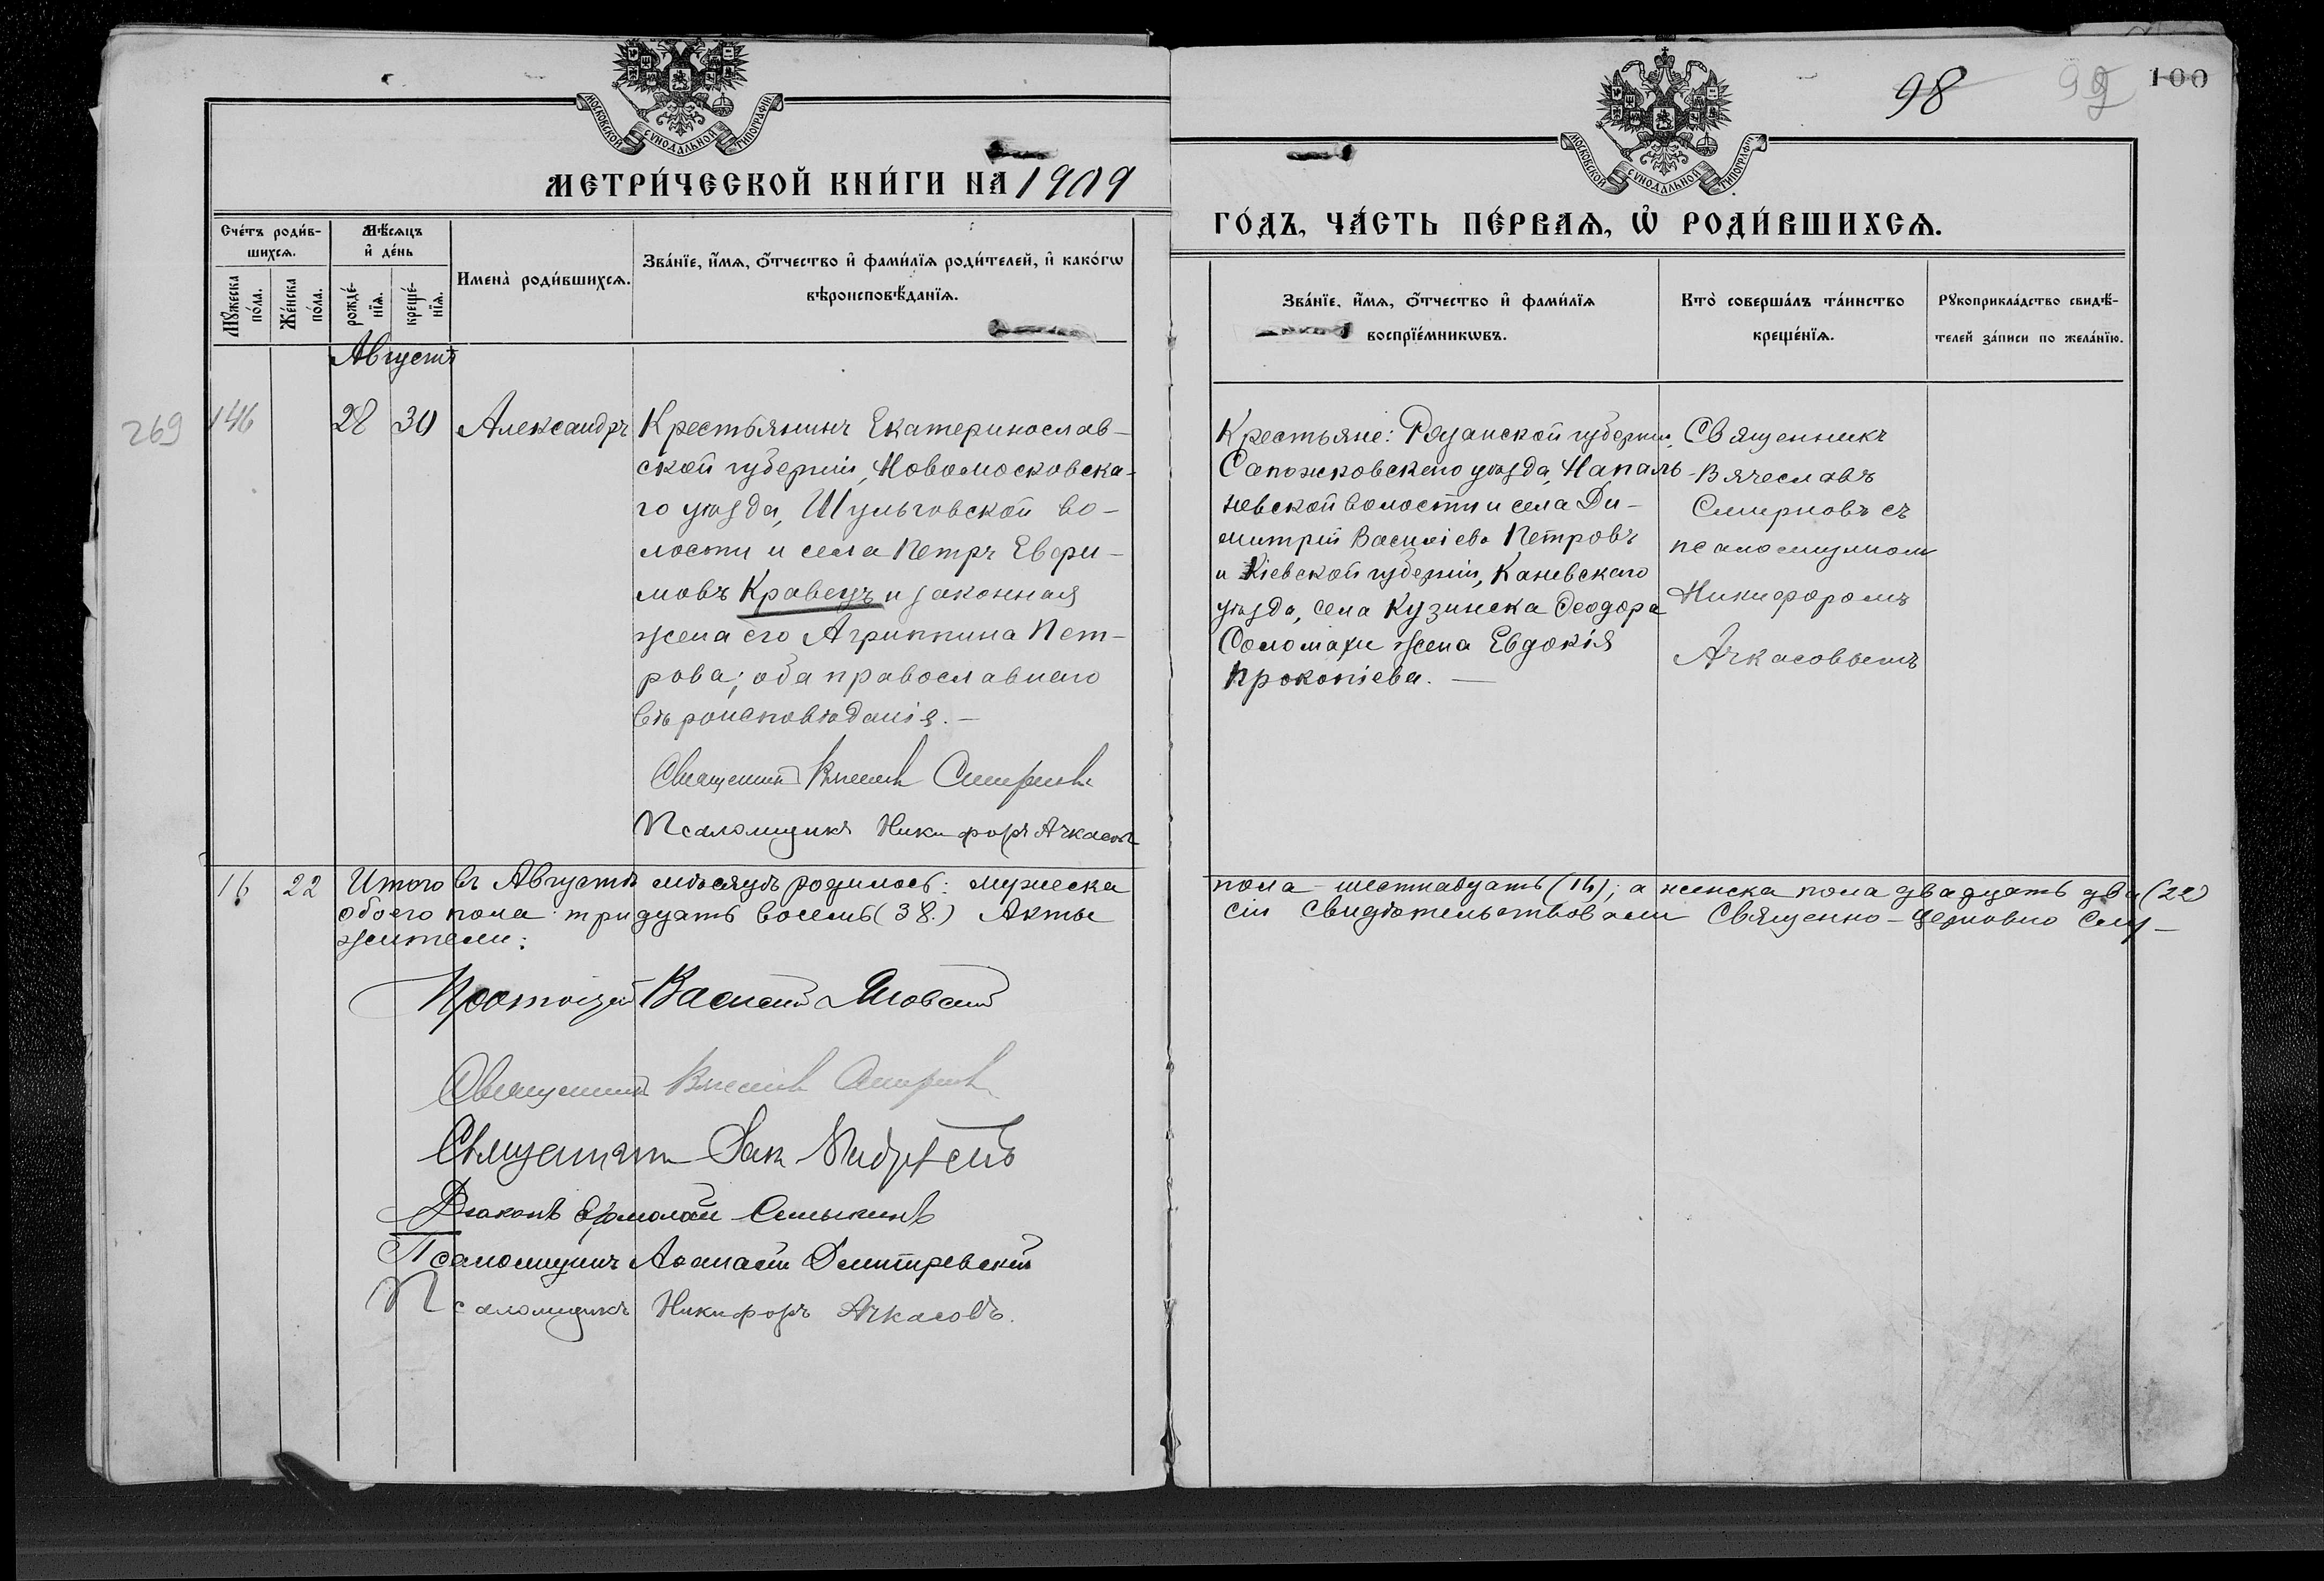 98 99 100
МОСКОВСКОЙ СѴНОДАЛЬНОЙ ТИПОГРАФІИ
МЕТРИ́ЧЕСКОЙ КНИ́ГИ НА 1909
Сче́тъ роди́в-
шихсѧ.
Мꙋ́жеска
по́ла.
Же́нска
по́ла.
Мѣ́сѧцъ
и҆ де́нь
рожде́-
нїѧ.
креще́-
нїѧ.
Имена̀ роди́вшихсѧ.
Зва́нїе, и҆́мѧ, ѻ҆́тчество и҆ фами́лїѧ роди́телей, и҆ како́гѡ
вѣроисповѣ́данїѧ.
Августъ
269 146 28 30 Александръ
Крестьянинъ Екатеринослав-
ской губерніи, Новомосковска-
го уѣзда, Шульговской во-
лости и села Петръ Евфи-
мовъ Кравецъ и законная
жена его Агриппина Пет-
рова; оба православнаго
вѣроисповѣданія.—
Священникъ Вячеславъ Смирновъ
Псаломщикъ Никифоръ Ачкасовъ
16 22 Итого въ Августѣ мѣсяцѣ родилось: мужеска
обоего пола: тридцать восемь (38.) Акты
жители:
Протоіерей Василій
Священникъ Вячеславъ Смирновъ
Діаконъ Ермолай
Псаломщикъ Аѳанасій Дмитревскій
Псаломщикъ Никифоръ Ачкасовъ.
МОСКОВСКОЙ СѴНОДАЛЬНОЙ ТИПОГРАФІИ
ГО́ДЪ, ЧА́СТЬ ПЕ́РВАѦ, Ѡ҆ РОДИ́ВШИХСѦ.
Зва́нїе, и҆́мѧ, ѻ҆́тчество и҆ фами́лїѧ
воспрїе́мникѡвъ.
Кто̀ соверша́лъ та́инство
креще́нїѧ.
Рꙋкоприкла́дство свидѣ́-
телей за́писи по жела́нїю.
Крестьяне: Рязанской губерніи,
Сапожковскаго уѣзда, Напаль-
невской волости и села Ди-
митрій Василіевъ Петровъ
и Кіевской губерніи, Каневскаго
уѣзда, села Кузинска Ѳеодора
Соломахи жена Евдокія
Прокопіева. —
Священникъ
Вячеславъ
Смирновъ съ
псаломщикомъ
Никифоромъ
Ачкасовымъ
пола шестнадцать (16); а женска пола двадцать два (22)
сіи свидѣтельствовали Священно-церковно слу-